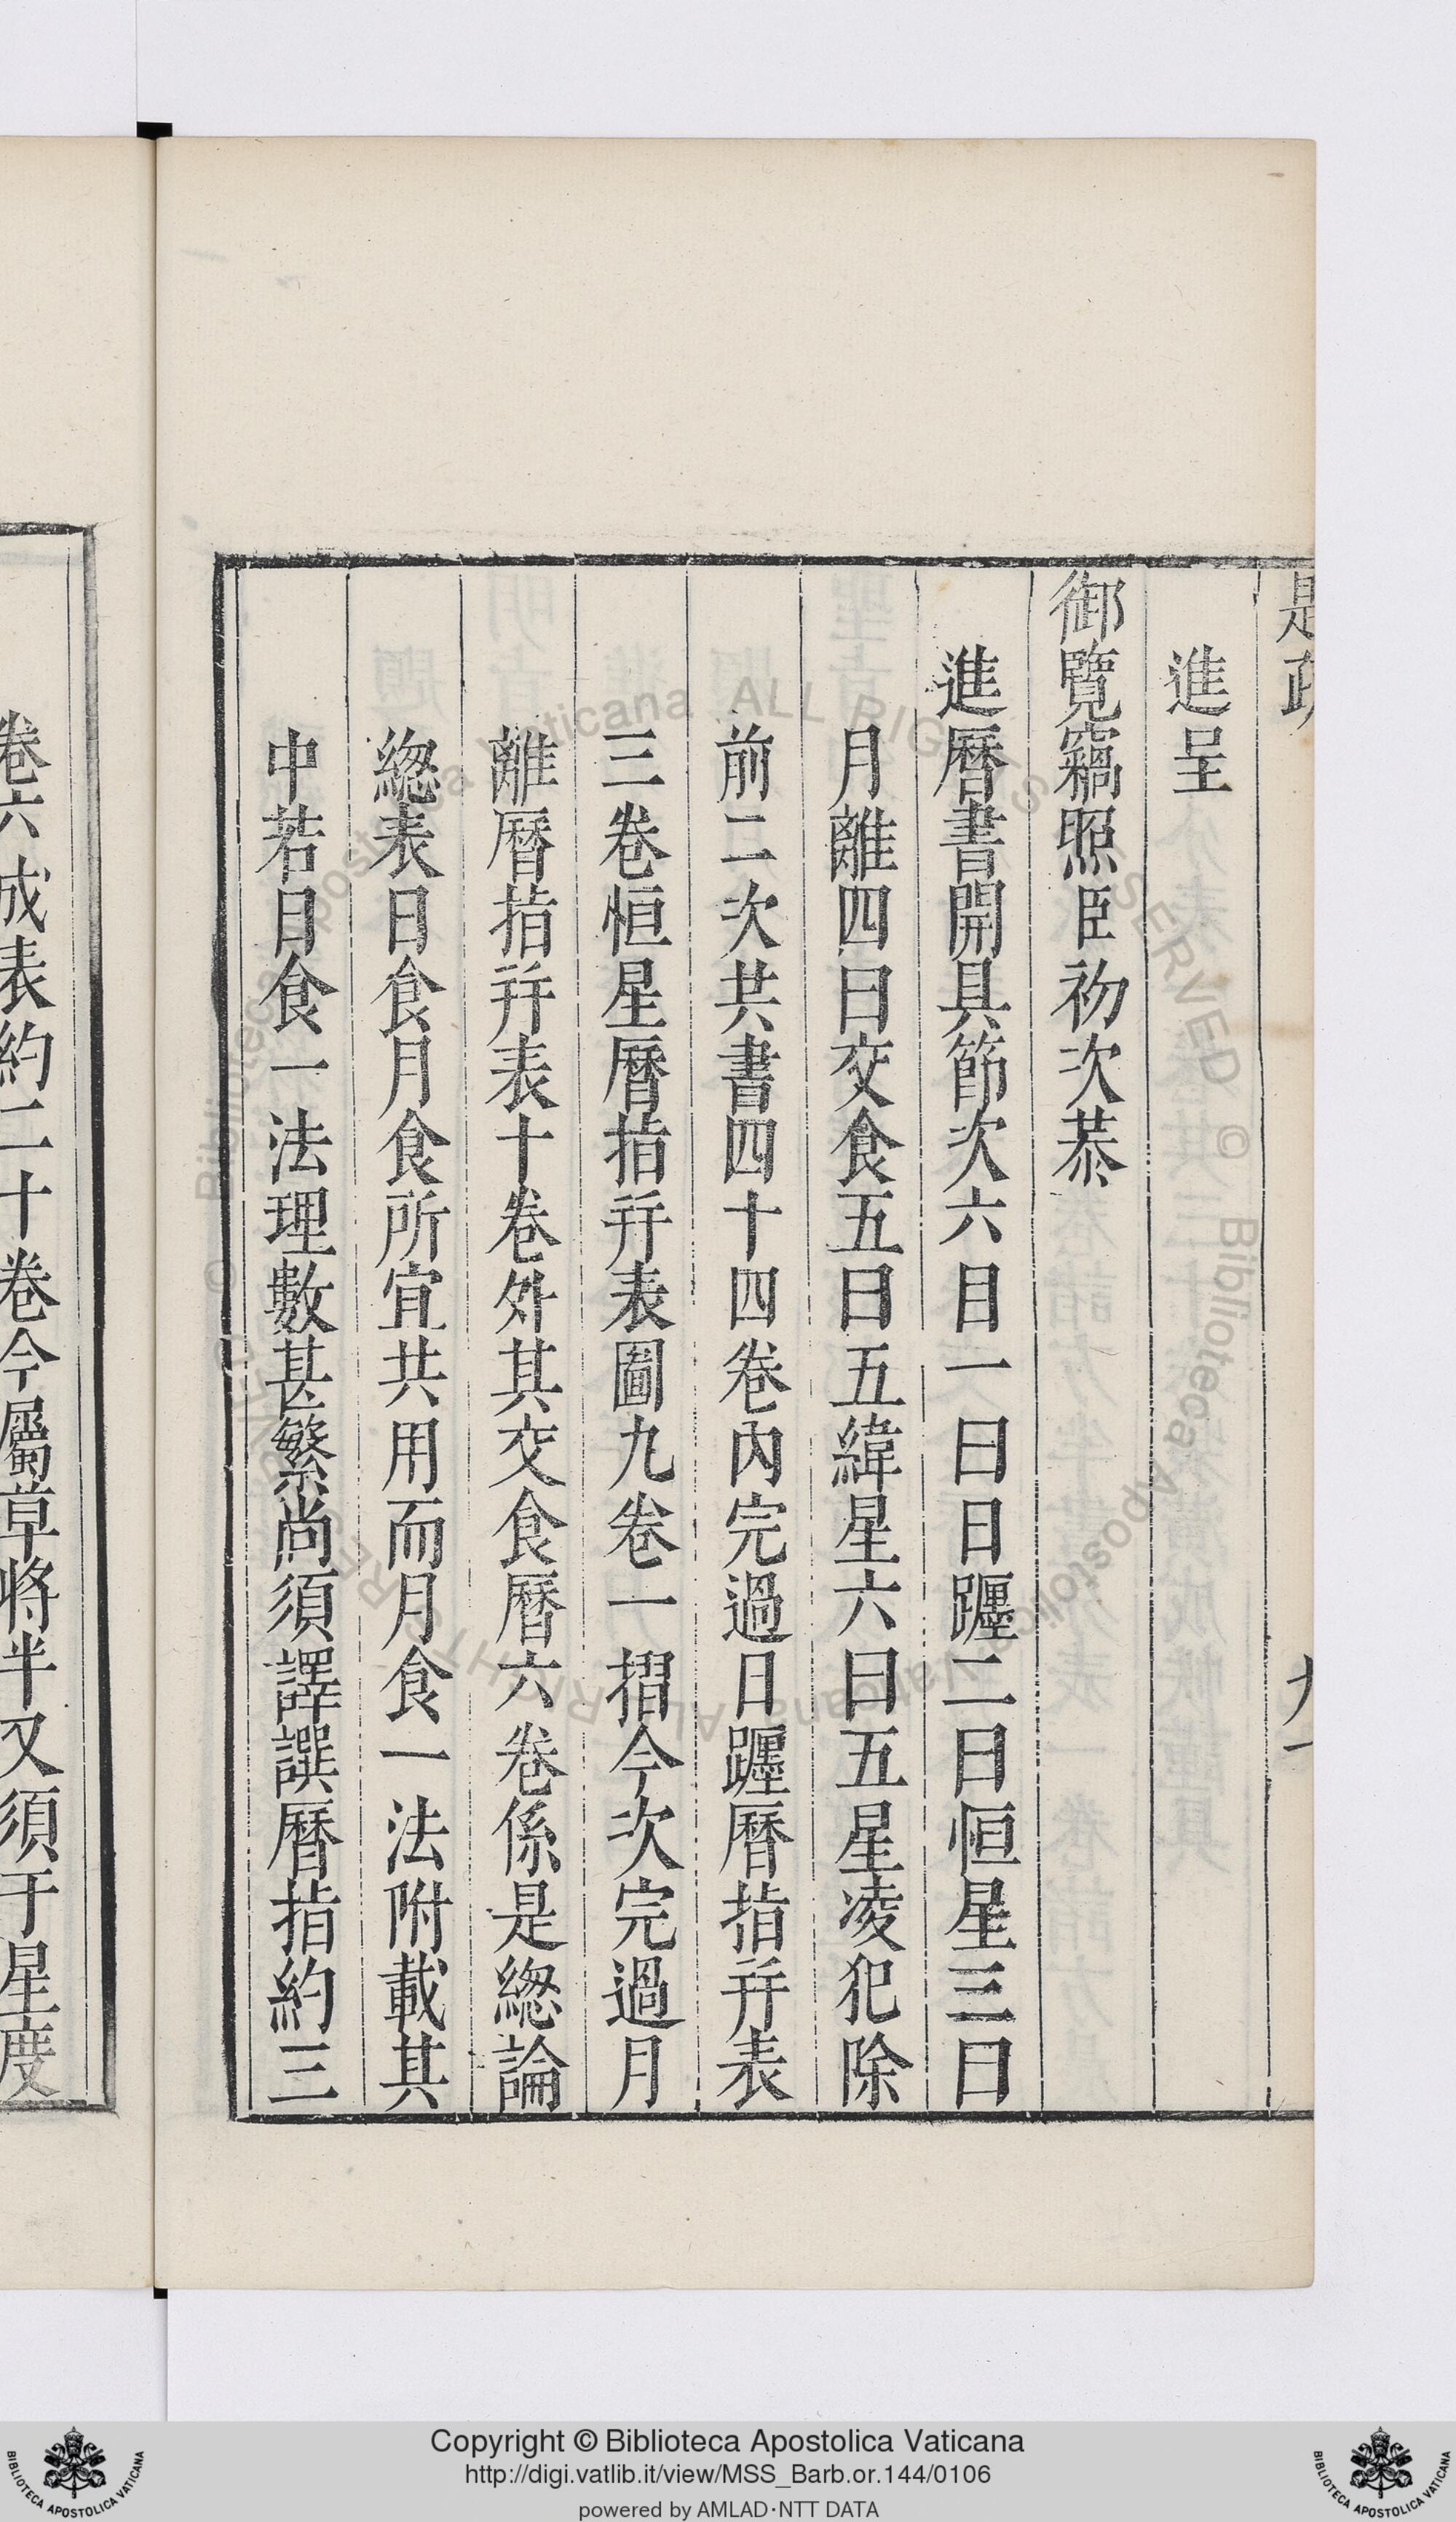 進呈
御覽竊照臣礽次恭
進曆書開具節次六目一曰日躔二曰恒星三曰
月離四曰交食五曰五緯星六曰五星凌犯除
前二次共書四十四卷內完過日躔曆指幷表
三卷恒星曆指幷表圖九卷一摺今次完過月
離曆指幷表十卷外其交食曆六卷係是總論
總表日食月食所宜共用而月食一法附載其
中若日食一法理數甚繁尚須譯譔曆指約三
卷六成表約二十卷今屬草將半又須于星度
Copyright © Biblioteca Apostolica Vaticana
http://digi.vatlib.it/view/MSS_Barb.or.144/0106
powered by AMLAD·NTT DATA
BIBLIOTECA APOSTOLICA VATICANA
BIBLIOTECA APOSTOLICA VATICANA